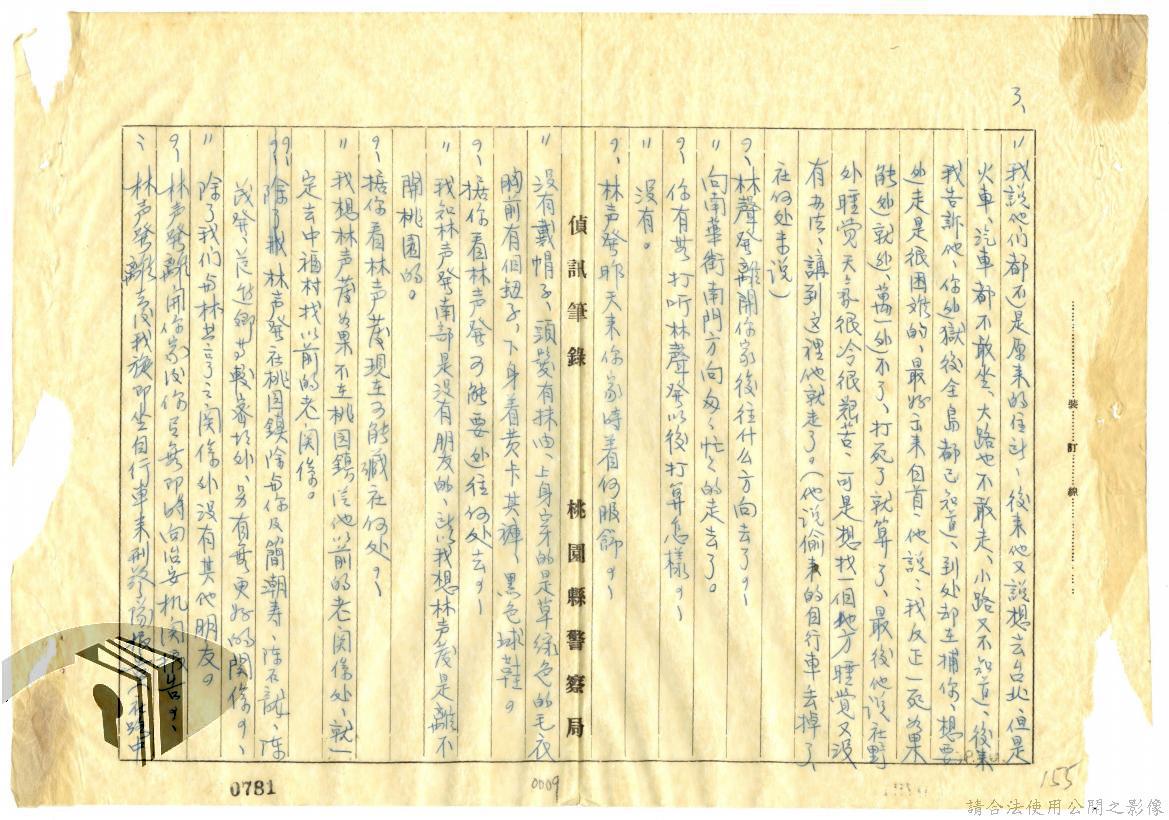 3、
〃我說他们都不是原来的住計、後来他又說想去台北、但是
火車、汽車都不敢坐、大路也不敢走、小路又不知道、後来
我告訴他、你处獄後全島都已知道、到处却在捕你、想要
处走是很困难的、最好去来自首、他說：我反正一死、如果
能处就处、萬一处不了、打死了就算了、最後他说在野
外睡覚天氣很冷很艱苦、可是想找一個地方睡覚又沒
有办法、講到这裡他就走了。(他说偷来的自行車去掉了、
在何处未说)
問、林聲發離開你家後往什么方向去了？
〃向南華街南門方向匆々忙々的走去了。
問、你有無打听林聲發以後打算怎樣？
〃沒有。
問、林声發昨天来你家時着何服飾？
偵訊筆錄 桃園縣警察局
〃沒有戴帽子、頭髮有抹油、上身穿的是草綠色的毛衣
胸前有個鈕子、下身着黄卡其褲、黑色球鞋。
問、据你看林声發可能要处往何处去？
〃我知林声發南部是沒有朋友的、所以我想林声發是離不
開桃園的。
問、据你看林声發現在可能藏在何处？
〃我想林声發如果不在桃园鎮從他以前的老関係处、就一
定去中福村找以前的老関係。
問、除了林声發在桃园鎮除与你及簡潮寿、陈石誠、陈
茂發、范進鄉等較密切外、另有無更好的関係？
〃除了我们与林等之関係外沒有其他朋友。
問、林声發離開你家後你有無即時向治安机関報告？
〃林声發離去後我旋即坐自行車来刑警隊報告、在路中
裝訂線
0781
0009
155
請合法使用公開之影像